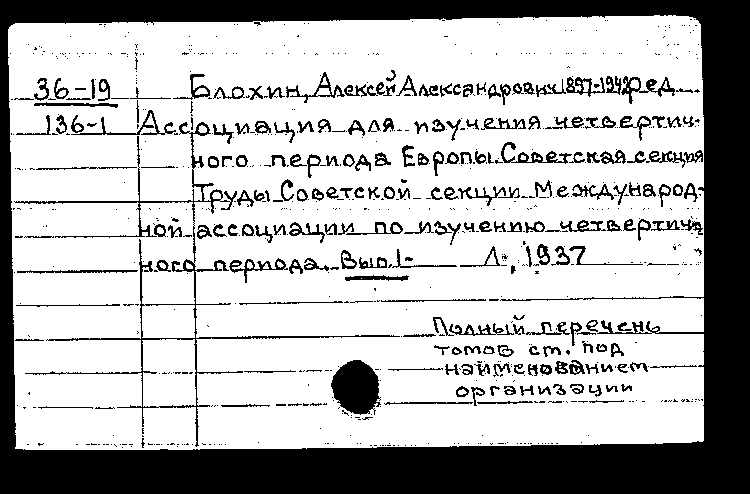 36-19 Блохин, Алексей Александрович 1897-1942 ред.
136-1 Ассоциация для изучения четвертич-
ного периода Европы. Советская секция
Труды Советской секции Международ-
ной ассоциации по изучению четвертич-
ного периода. Вып.1- Л., 1937
Полный перечень
томов ст. под
наименованием
организации